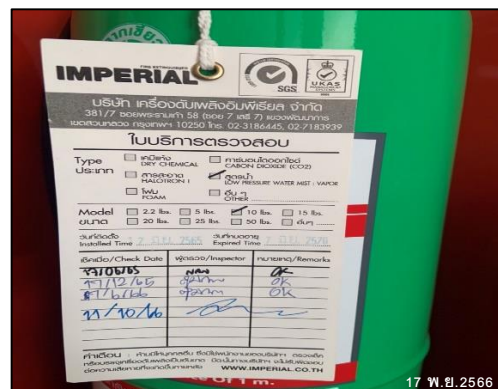 FIRE EXTINGUISHER
IMPERIAL
SGS
UKAS
บริษัท เครื่องดับเพลิงอิมพีเรียล จำกัด
381/7 ซอยพระรามเก้า 58 (ซอย 7 เสรี 7) แขวงพัฒนาการ
เขตสวนหลวง กรุงเทพฯ 10250 โทร. 02-3186445, 02-7183939
ใบบริการตรวจสอบ
Type ประเภท
เคมีแห้ง DRY CHEMICAL
คาร์บอนไดออกไซด์ CABON DIOXIDE (CO2)
สารสะอาด HALOTRON I
สูตรน้ำ LOW PRESSURE WATER MIST : VAPOR
โฟม FOAM
อื่น ๆ OTHER
Model ขนาด
2.2 lbs. 5 lbs. 10 lbs. 15 lbs.
20 lbs. 25 lbs. 50 lbs. อื่นๆ
วันที่ติดตั้ง Installed Time 2565
วันที่หมดอายุ Expired Time
เช็คเมื่อ/Check Date ผู้ตรวจ/Inspector หมายเหตุ/Remarks
17/06/65 OK
17/12/65 OK
17/6/66 OK
17/10/66
คำเตือน :
WWW.IMPERIAL.CO.TH
17 พ.ย.2566